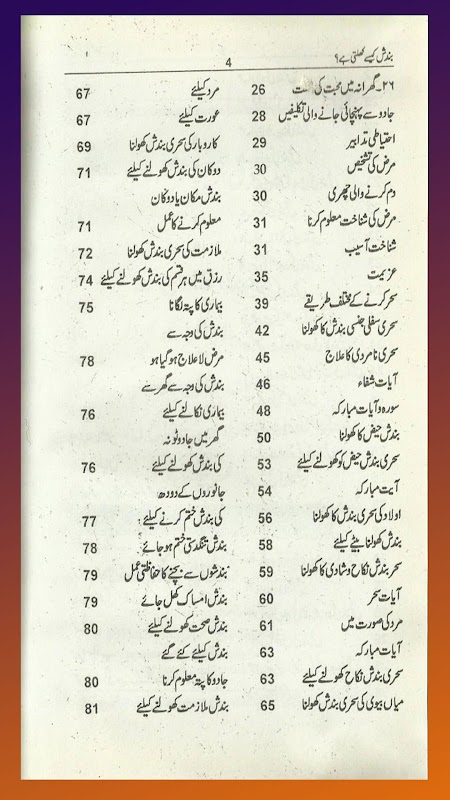 بندش کیسے کھلتی ہے؟
4
۲۶۔گھرانہ میں محبت کی 26
جادو سے پہنچائی جانے والی تکلیفیں 28
احتیاطی تدابیر 29
مرض کی تشخیص 30
دم کرنے والی چھری 30
مرض کی شناخت معلوم کرنا 31
شناخت آسیب 31
عزیمت 35
سحر کرنے کے مختلف طریقے 39
سحری سفلی جنسی بندش کا کھولنا 42
سحری نامردی کا علاج 45
آیات شفاء 46
سورہ و آیات مبارکہ 48
بندش حیض کا کھولنا 50
سحری بندش حیض کو کھولنے کیلئے 53
آیت مبارکہ 54
اولاد کی سحری بندش کا کھولنا 56
بندش کھولنا بیٹے کیلئے 58
سحر بندش نکاح و شادی کا کھولنا 59
آیات سحر 60
مرد کی صورت میں 61
آیات مبارکہ 63
سحری بندش نکاح کھولنے کیلئے 63
میاں بیوی کی سحری بندش کھولنا 65
مرد کیلئے 67
عورت کیلئے 67
کاروبار کی سحری بندش کھولنا 69
دوکان کی بندش کھولنے کیلئے 71
بندش مکان یا دوکان
معلوم کرنے کا عمل 71
ملازمت کی سحری بندش کھولنا 72
رزق میں ہر قسم کی بندش کھولنے کیلئے 74
بیماری کا پتہ لگانا 75
بندش کی وجہ سے
مرض لا علاج ہو گیا ہو 78
بندش کی وجہ سے گھر سے
بیماری نکالنے کیلئے 76
گھر میں جادو ٹونہ
کی بندش کھولنے کیلئے 76
جانوروں کے دودھ
کی بندش ختم کرنے کیلئے 77
بندش تنگدستی ختم ہو جائے 78
بندشوں سے بچنے کا حفاظتی عمل 79
بندش امساک کھل جائے 79
بندش صحت کھولنے کیلئے 80
بندش کیلئے کئے گئے
جادو کا پتہ معلوم کرنا 80
بندش ملازمت کھولنے کیلئے 81